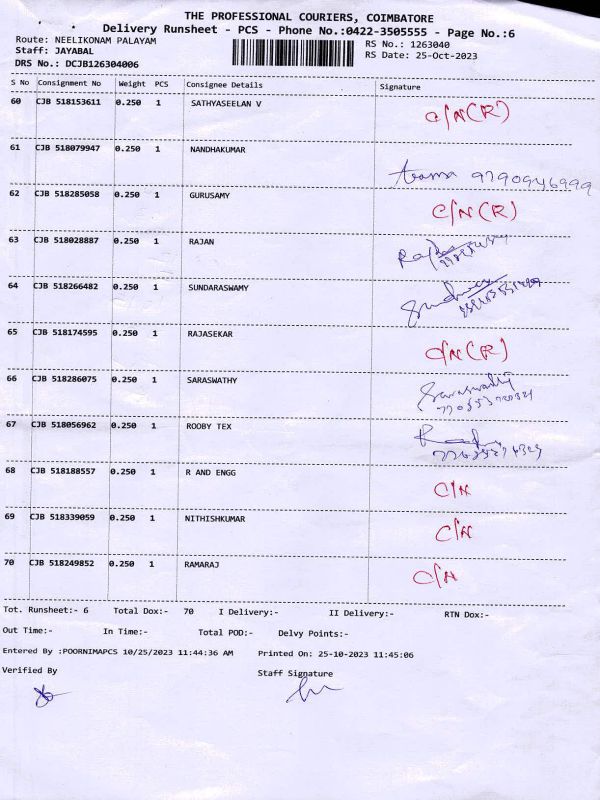 THE PROFESSIONAL COURIERS, COIMBATORE
Delivery Runsheet - PCS - Phone No.:0422-3505555 - Page No.:6
Route: NEELIKONAM PALAYAM
RS No.: 1263040
Staff: JAYABAL
RS Date: 25-Oct-2023
DRS No.: DCJB126304006
S No Consignment No Weight PCS Consignee Details Signature
60 CJB 518153611 0.250 1 SATHYASEELAN V C/N(R)
61 CJB 518079947 0.250 1 NANDHAKUMAR
9790946999
62 CJB 518285058 0.250 1 GURUSAMY C/N(R)
63 CJB 518028887 0.250 1 RAJAN
64 CJB 518266482 0.250 1 SUNDARASWAMY
65 CJB 518174595 0.250 1 RAJASEKAR C/N(R)
66 CJB 518286075 0.250 1 SARASWATHY Saraswathy
67 CJB 518056962 0.250 1 ROOBY TEX
68 CJB 518188557 0.250 1 R AND ENGG C/N
69 CJB 518339059 0.250 1 NITHISHKUMAR C/N
70 CJB 518249852 0.250 1 RAMARAJ C/N
Tot. Runsheet:- 6 Total Dox:- 70 I Delivery:- II Delivery:- RTN Dox:-
Out Time:- In Time:- Total POD:- Delvy Points:-
Entered By :POORNIMAPCS 10/25/2023 11:44:36 AM Printed On: 25-10-2023 11:45:06
Verified By Staff Signature